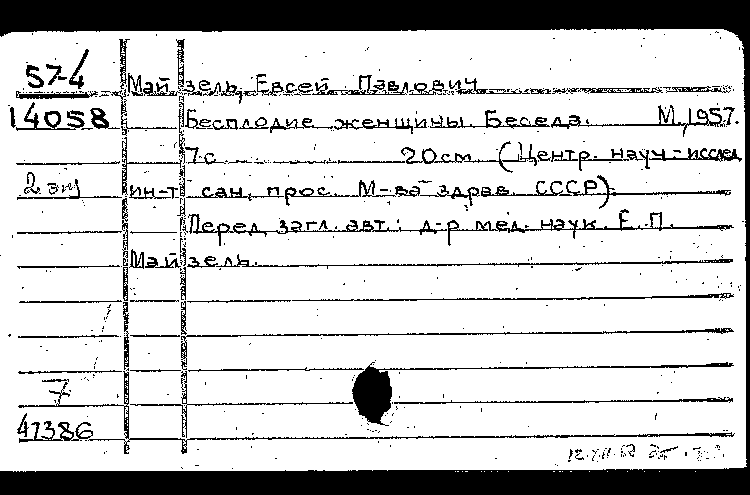 57-4
Майзель, Евсей Павлович
14058
Бесплодие женщины. Беседа. М., 1957.
7 с. 20 см. (Центр. науч.-исслед.
2 экз
ин-т сан. прос. М-ва здрав. СССР).
Перед загл. авт.: д-р мед. наук Е. П.
Майзель.
7
41386